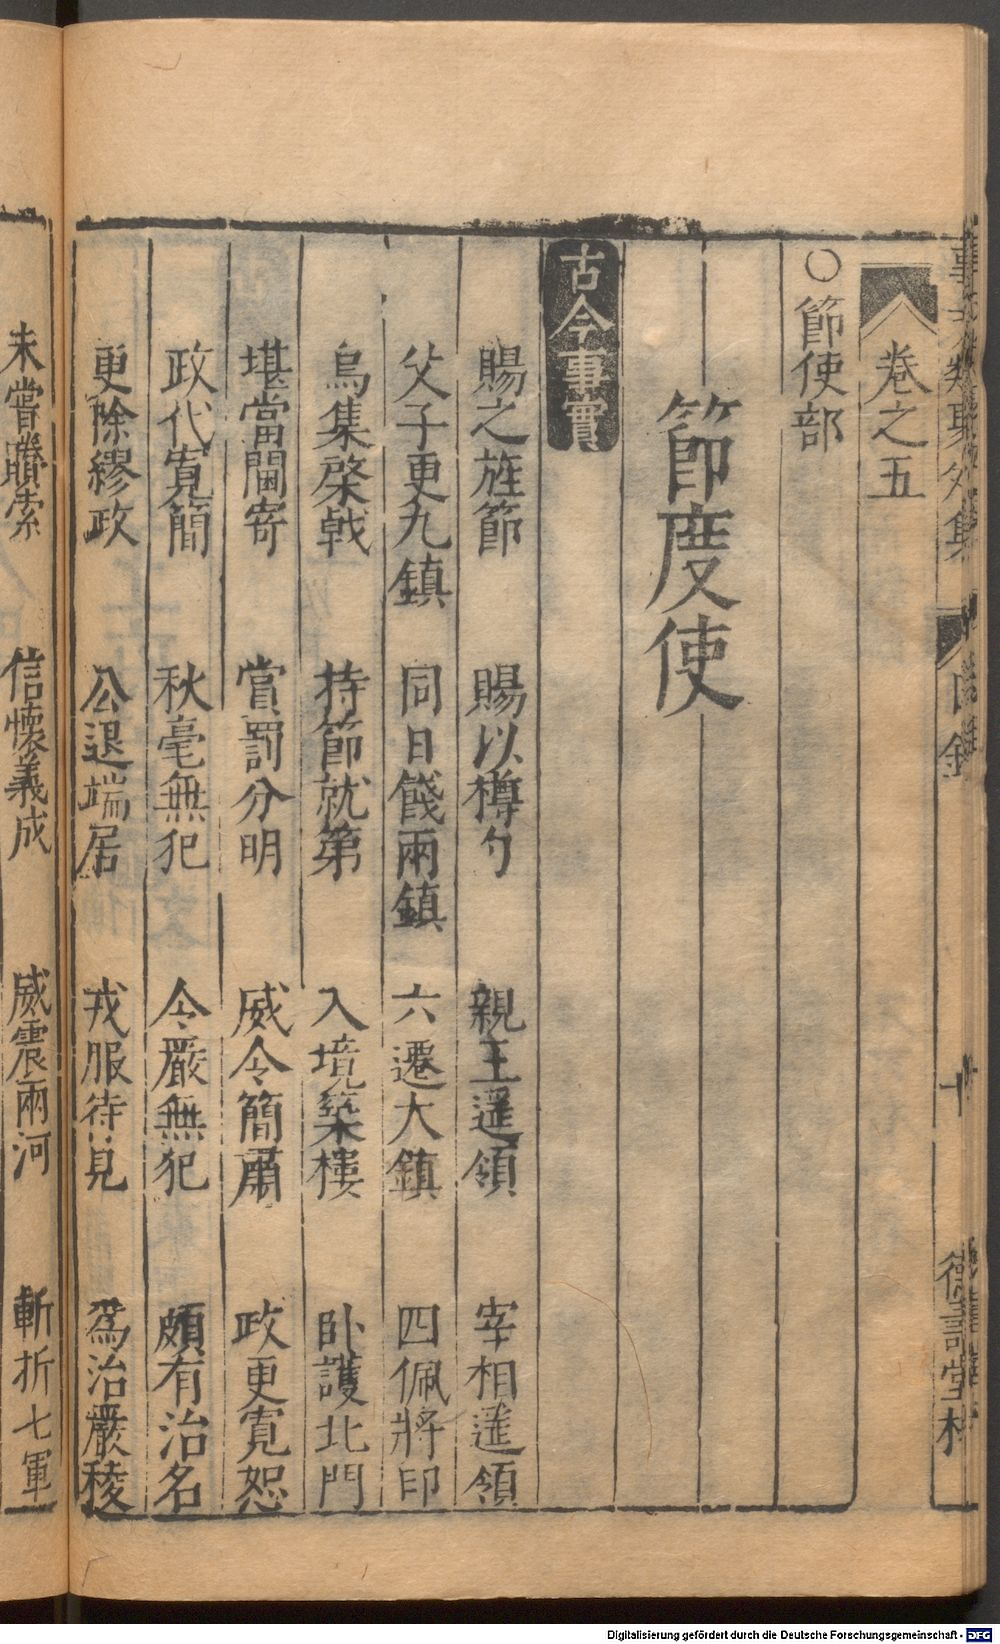 卷之五
○節使部
節度使
古今事實
賜之旌節　賜以樽勺　親王遥領　宰相遥領
父子更九鎮　同日餞兩鎮　六遷大鎮　四佩將印
烏集棨戟　持節就第　入境築樓　卧護北門
堪當閫寄　賞罰分明　威令簡肅　政更寬恕
政代寬簡　秋毫無犯　令嚴無犯　頗有治名
更除繆政　公退端居　戎服待見　爲治嚴稜
未嘗聽索　信懷義成　威震兩河　斬折七軍
Digitalisierung gefördert durch die Deutsche Forschungsgemeinschaft - DFG